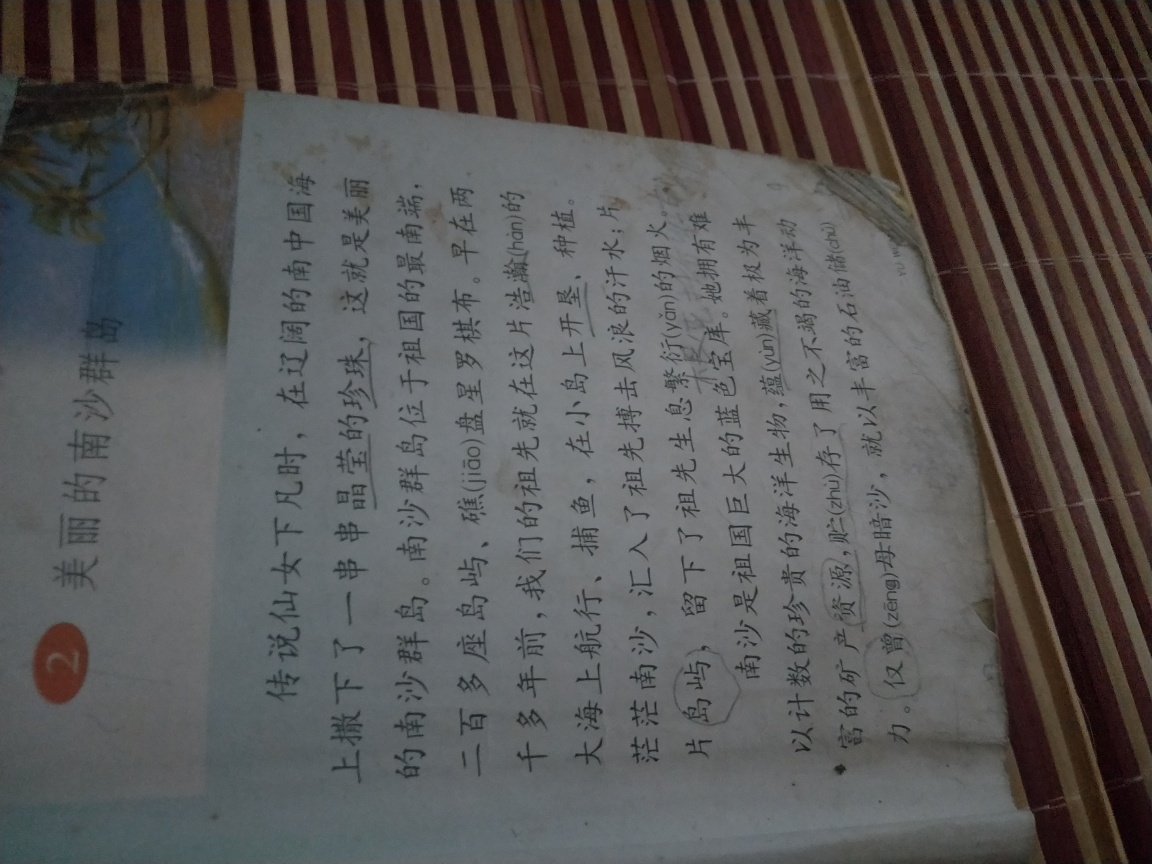 2 美丽的南沙群岛
传说仙女下凡时，在辽阔的南中国海
上撒下了一串串晶莹的珍珠，这就是美丽
的南沙群岛。南沙群岛位于祖国的最南端，
二百多座岛屿、礁(jiāo)盘星罗棋布。早在两
千多年前，我们的祖先就在这片浩瀚(hàn)的
大海上航行、捕鱼，在小岛上开垦、种植。
茫茫南沙，汇入了祖先搏击风浪的汗水；片
片岛屿，留下了祖先生息繁衍(yǎn)的烟火。
南沙是祖国巨大的蓝色宝库。她拥有难
以计数的珍贵的海洋生物，蕴(yùn)藏着极为丰
富的矿产资源，贮(zhù)存了用之不竭的海洋动
力。仅曾(zēng)母暗沙，就以丰富的石油储(chǔ)